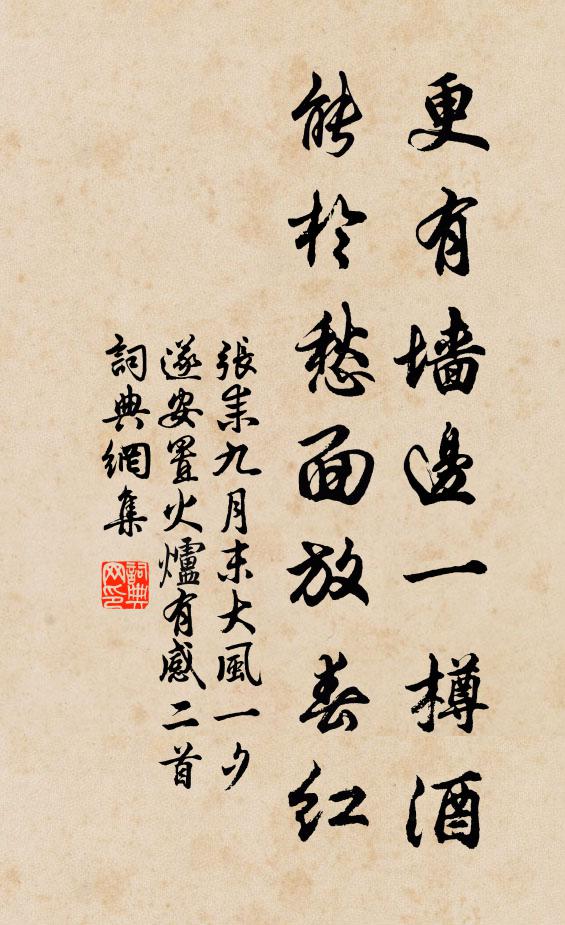 更有墙邊一樽酒
能於愁面放春紅
張耒九月末大風一夕
遂安置火爐有感二首
詞典網集
詞典
网印